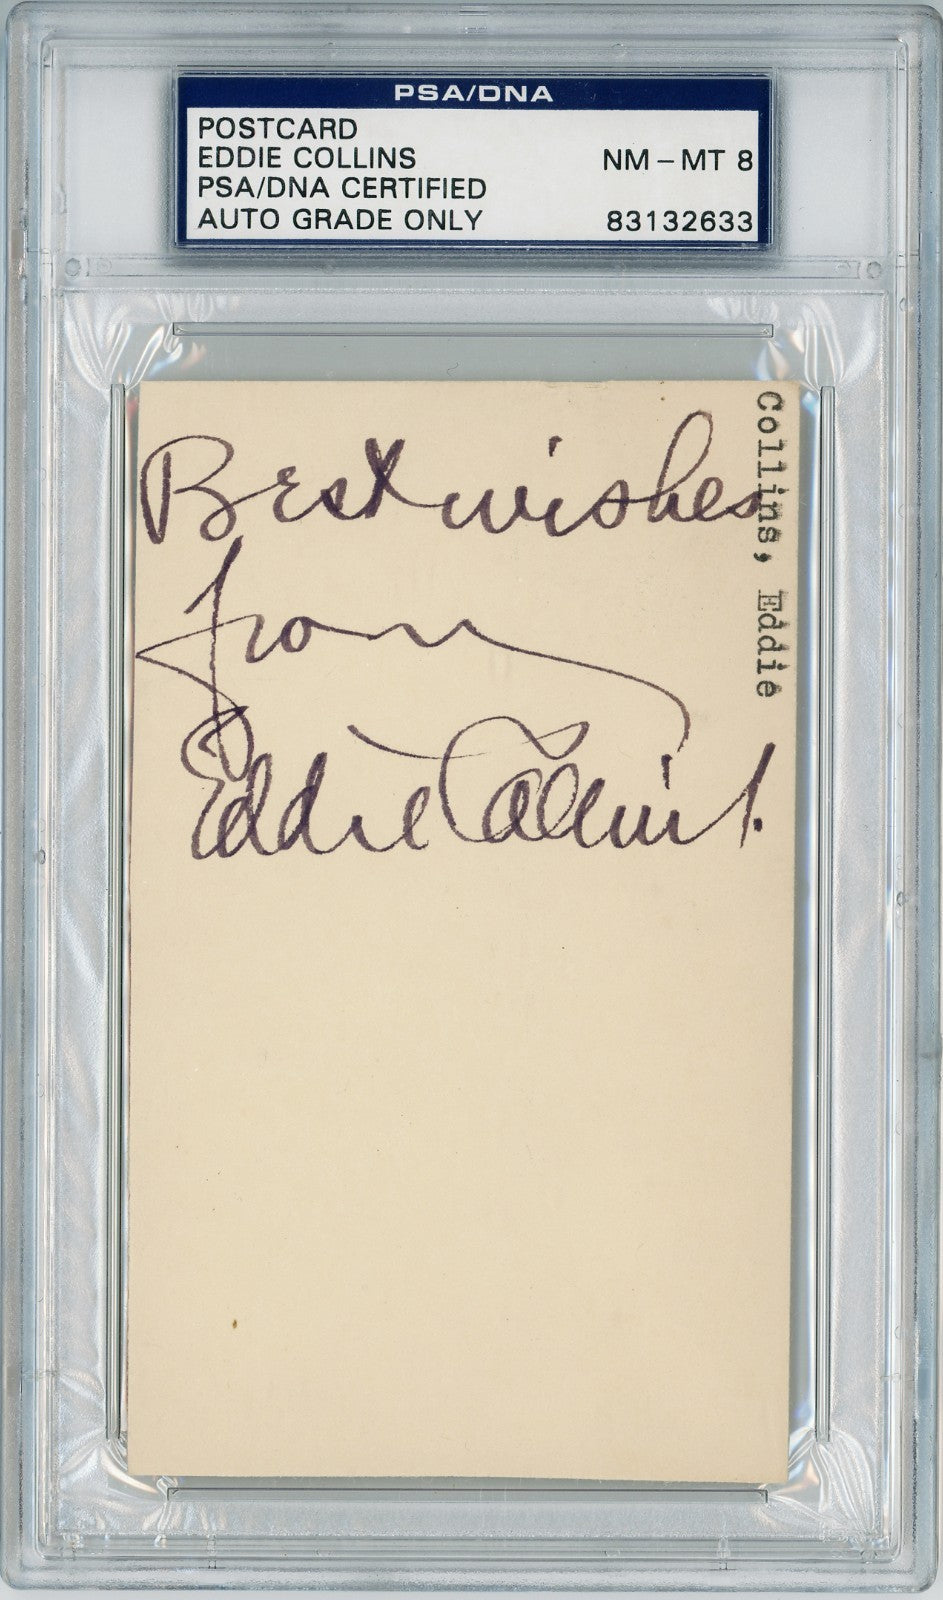 PSA/DNA
POSTCARD
EDDIE COLLINS NM-MT 8
PSA/DNA CERTIFIED
AUTO GRADE ONLY 83132633
Collins, Eddie
Best wishes
from
Eddie Collins.